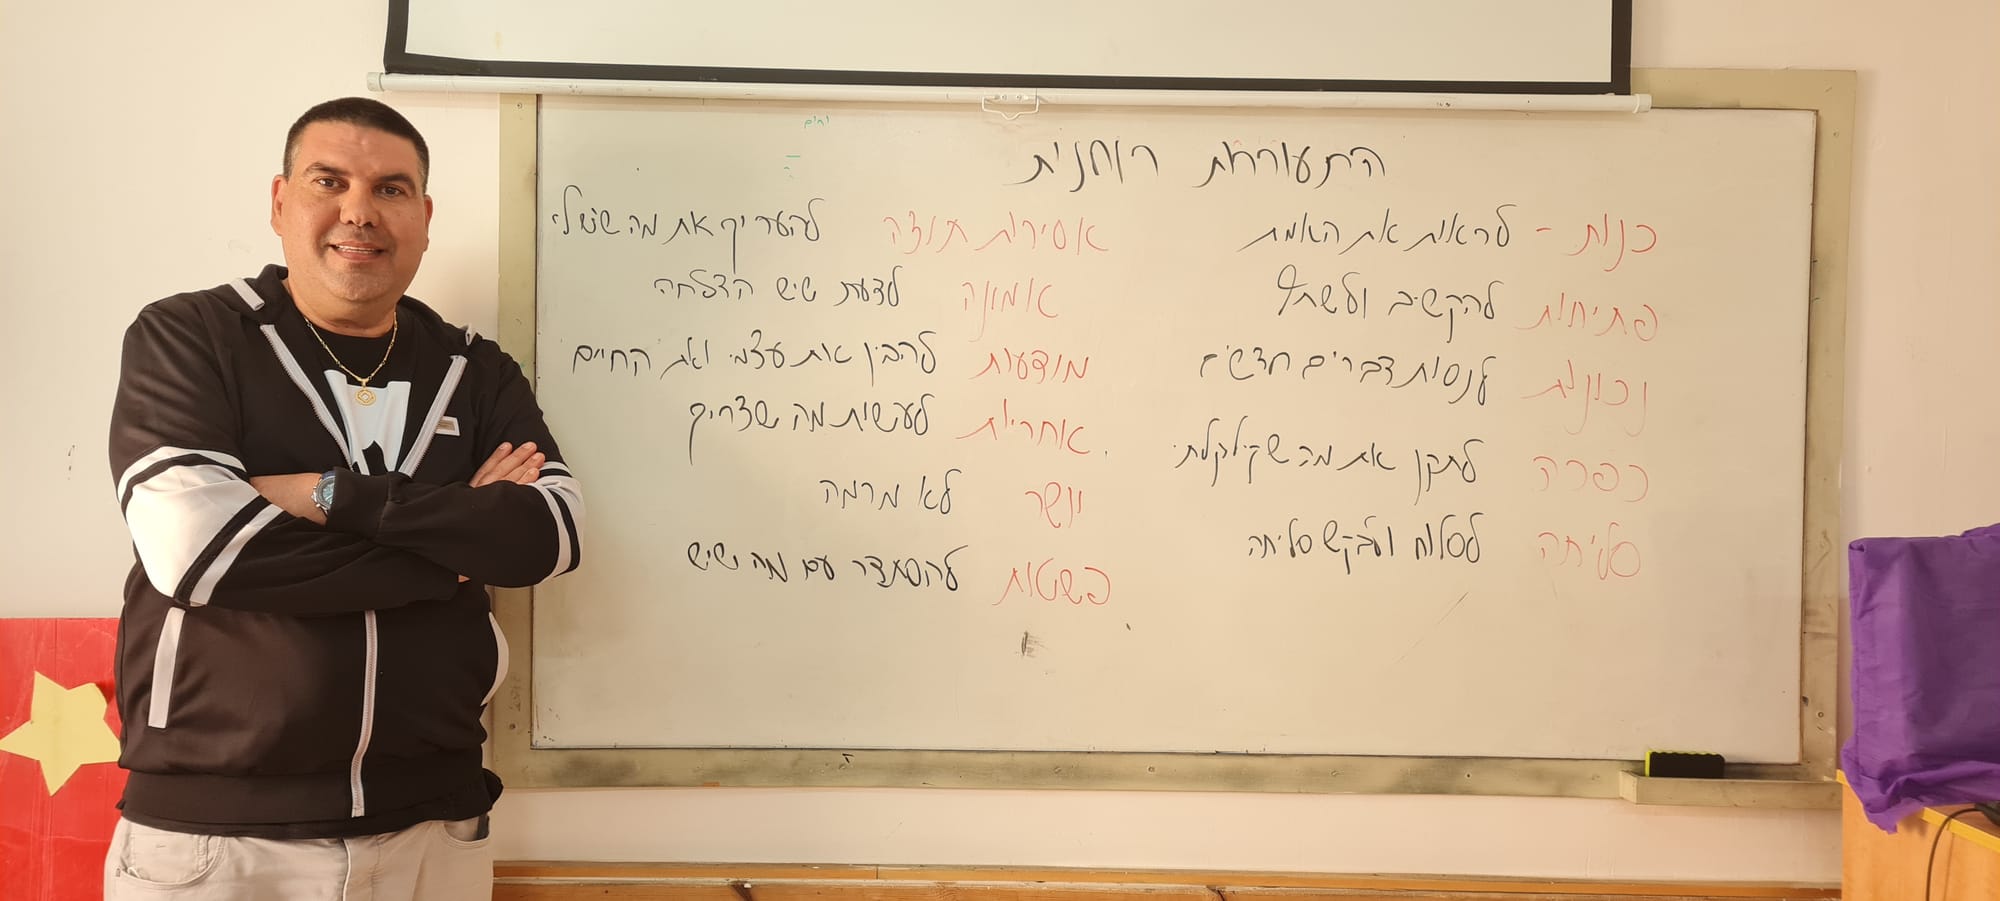 התעוררות רוחנית
כנות - לראות את האמת
פתיחות להקשיב ולשתף
נכונות לנסות דברים חדשים
כפרה לתקן את מה שקילקלתי
סליחה לסלוח ולבקש סליחה
אסירות תודה להעריך את מה שיש לי
אמונה לדעת שיש הצלחה
מודעות להבין את עצמי ואת החיים
אחריות לעשות מה שצריך
יושר לא מרמה
פשטות להסתדר עם מה שיש